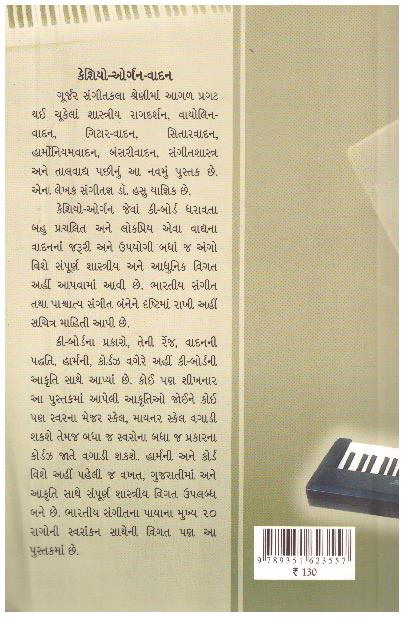 કેશિયો-ઓર્ગન-વાદન
ગૂર્જર સંગીતકલા શ્રેણીમાં આગળ પ્રગટ
થઈ ચૂકેલાં શાસ્ત્રીય રાગદર્શન, વાયોલિન-
વાદન, ગિટાર-વાદન, સિતારવાદન,
હાર્મોનિયમવાદન, બંસરીવાદન, સંગીતશાસ્ત્ર
અને તાલવાદ્ય પછીનું આ નવમું પુસ્તક છે.
એના લેખક સંગીતજ્ઞ ડૉ. હસુ યાજ્ઞિક છે.
કેશિયો-ઓર્ગન જેવાં કી-બોર્ડ ધરાવતા
બહુ પ્રચલિત અને લોકપ્રિય એવા વાદ્યના
વાદનનાં જરૂરી અને ઉપયોગી બધાં જ અંગો
વિશે સંપૂર્ણ શાસ્ત્રીય અને આધુનિક વિગત
અહીં આપવામાં આવી છે. ભારતીય સંગીત
તથા પાશ્ચાત્ય સંગીત બંનેને દૃષ્ટિમાં રાખી અહીં
સચિત્ર માહિતી આપી છે.
કી-બોર્ડના પ્રકારો, તેની રેંજ, વાદનની
પદ્ધતિ, હાર્મની, કોર્ડઝ વગેરે અહીં કી-બોર્ડની
આકૃતિ સાથે આપ્યાં છે. કોઈ પણ શીખનાર
આ પુસ્તકમાં આપેલી આકૃતિઓ જોઈને કોઈ
પણ સ્વરના મેજર સ્કેલ, માયનર સ્કેલ વગાડી
શકશે તેમજ બધા જ સ્વરોના બધા જ પ્રકારના
કોર્ડઝ જાતે વગાડી શકશે. હાર્મની અને કોર્ડ
વિશે અહીં પહેલી જ વખત, ગુજરાતીમાં અને
આકૃતિ સાથે સંપૂર્ણ શાસ્ત્રીય વિગત ઉપલબ્ધ
બને છે. ભારતીય સંગીતના પાયાના મુખ્ય ૨૦
રાગોની સ્વરાંકન સાથેની વિગત પણ આ
પુસ્તકમાં છે.
9 789351 623557
₹ 130